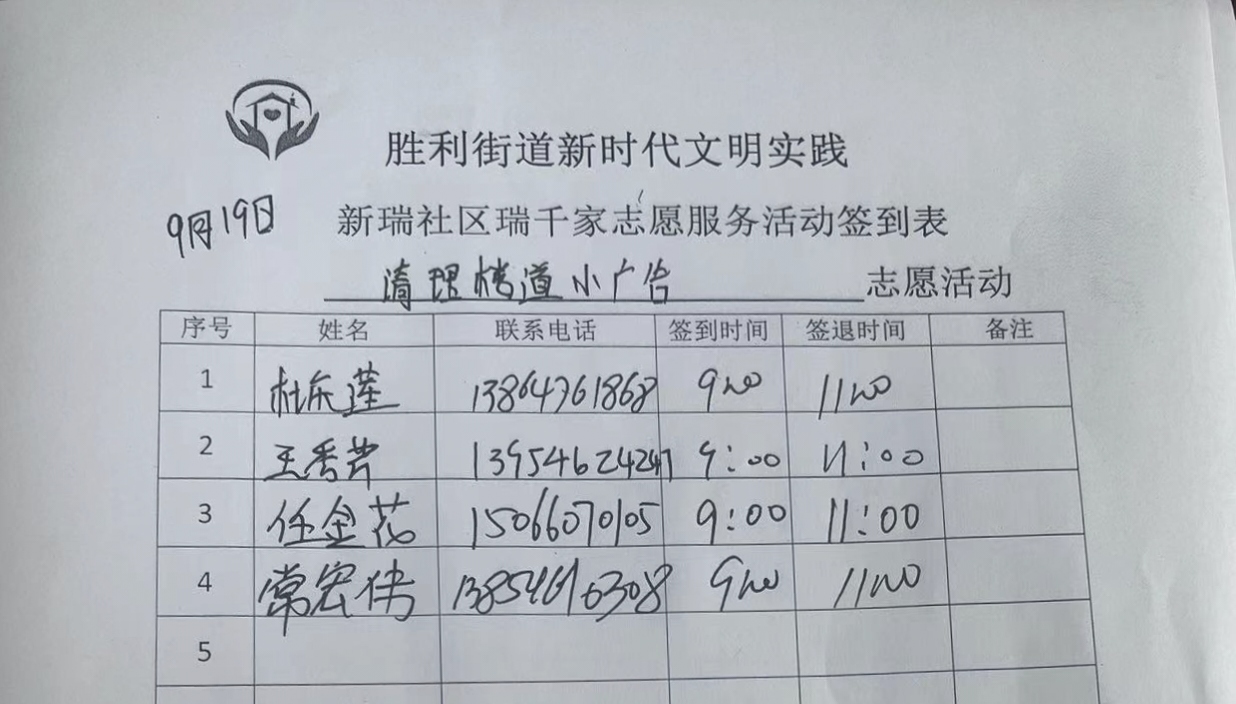 胜利街道新时代文明实践
9月19日 新瑞社区瑞千家志愿服务活动签到表
清理楼道小广告 志愿活动
序号 姓名 联系电话 签到时间 签退时间 备注
1 杜东莲 13864761868 9:00 11:00
2 王秀芳 13954624247 9:00 11:00
3 任金花 15066070105 9:00 11:00
4 常宏伟 9:00 11:00
5